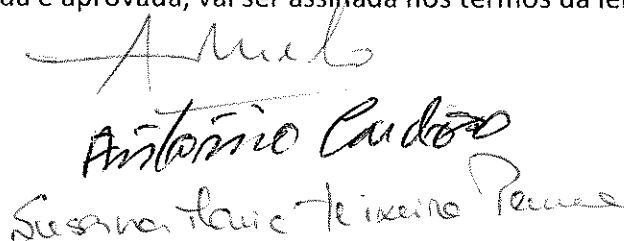 da e aprovada, vai ser assinada nos termos da lei
A Melo
António Cardoso
Susana Maria Teixeira